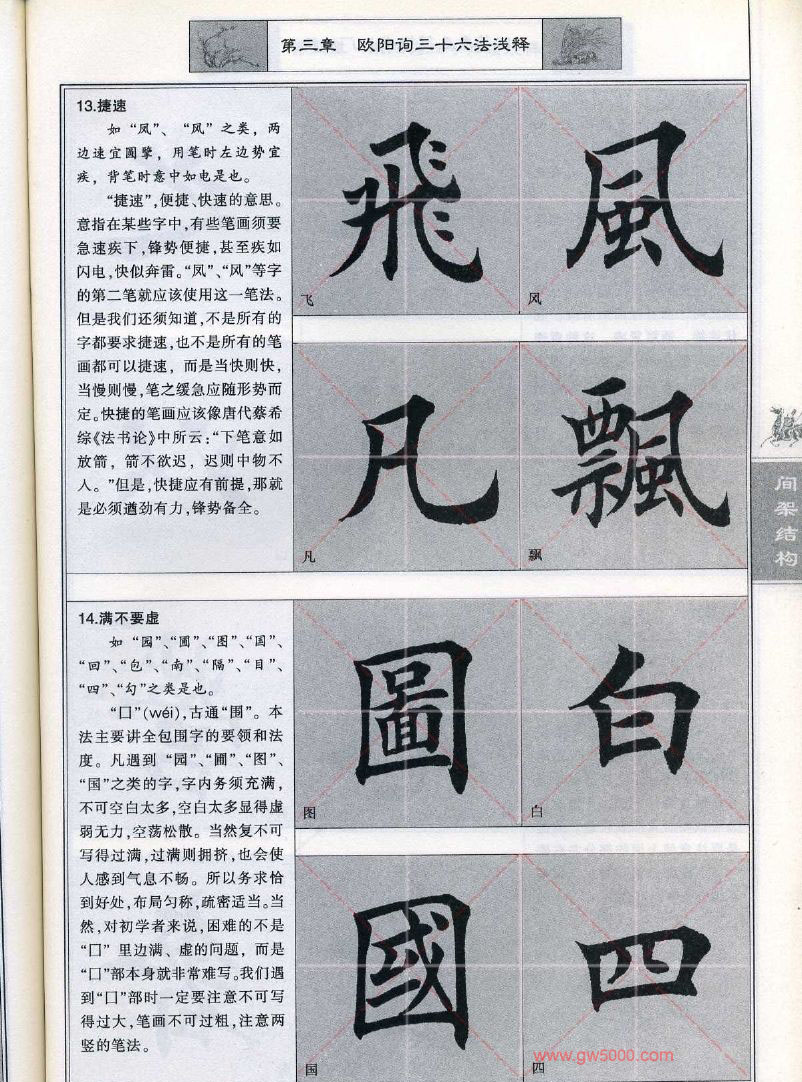 第三章 欧阳询三十六法浅释
13.捷速
如“凤”、“风”之类，两
边速宜圆擎，用笔时左边势宜
疾，背笔时意中如电是也。
“捷速”，便捷、快速的意思。
意指在某些字中，有些笔画须要
急速疾下，锋势便捷，甚至疾如
闪电，快似奔雷。“凤”、“风”等字
的第二笔就应该使用这一笔法。
但是我们还须知道，不是所有的
字都要求捷速，也不是所有的笔
画都可以捷速，而是当快则快，
当慢则慢，笔之缓急应随形势而
定。快捷的笔画应该像唐代蔡希
综《法书论》中所云：“下笔意如
放箭，箭不欲迟，迟则中物不
入。”但是，快捷应有前提，那就
是必须遒劲有力，锋势备全。
飛
飞
風
风
凡
凡
飄
飘
间架结构
14.满不要虚
如“园”、“圃”、“图”、“国”、
“回”、“包”、“南”、“隔”、“目”、
“四”、“勾”之类是也。
“囗”(wéi)，古通“围”。本
法主要讲全包围字的要领和法
度。凡遇到“园”、“圃”、“图”、
“国”之类的字，字内务须充满，
不可空白太多，空白太多显得虚
弱无力，空荡松散。当然复不可
写得过满，过满则拥挤，也会使
人感到气息不畅。所以务求恰
到好处，布局匀称，疏密适当。当
然，对初学者来说，困难的不是
“囗”里边满、虚的问题，而是
“囗”部本身就非常难写。我们遇
到“囗”部时一定要注意不可写
得过大，笔画不可过粗，注意两
竖的笔法。
圖
图
白
白
國
国
四
四
www.gw5000.com